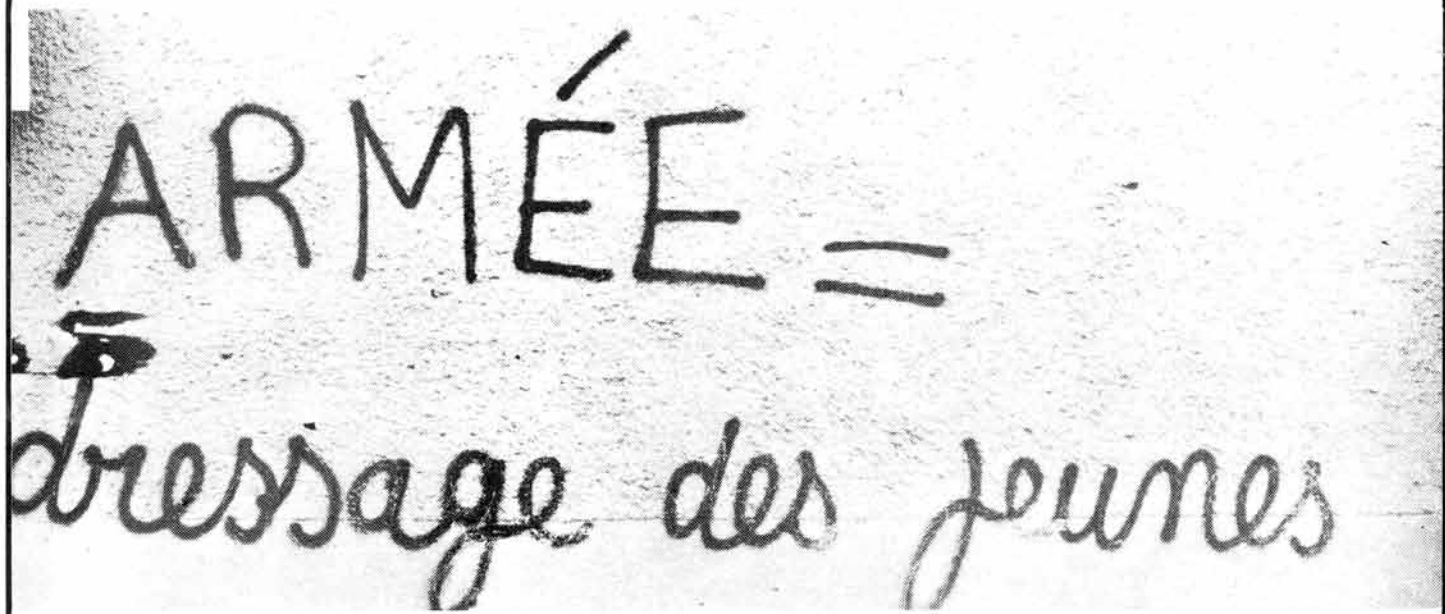 ARMÉE =
dressage des jeunes